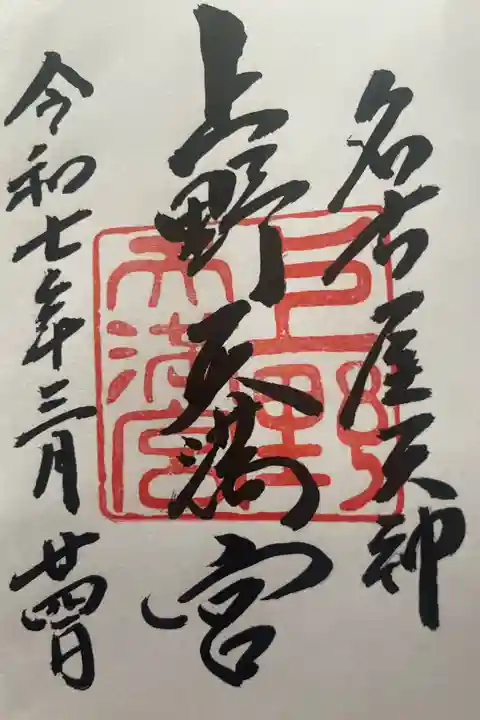 名古屋天神
上野天満宮
令和七年三月廿四日
上野天満宮